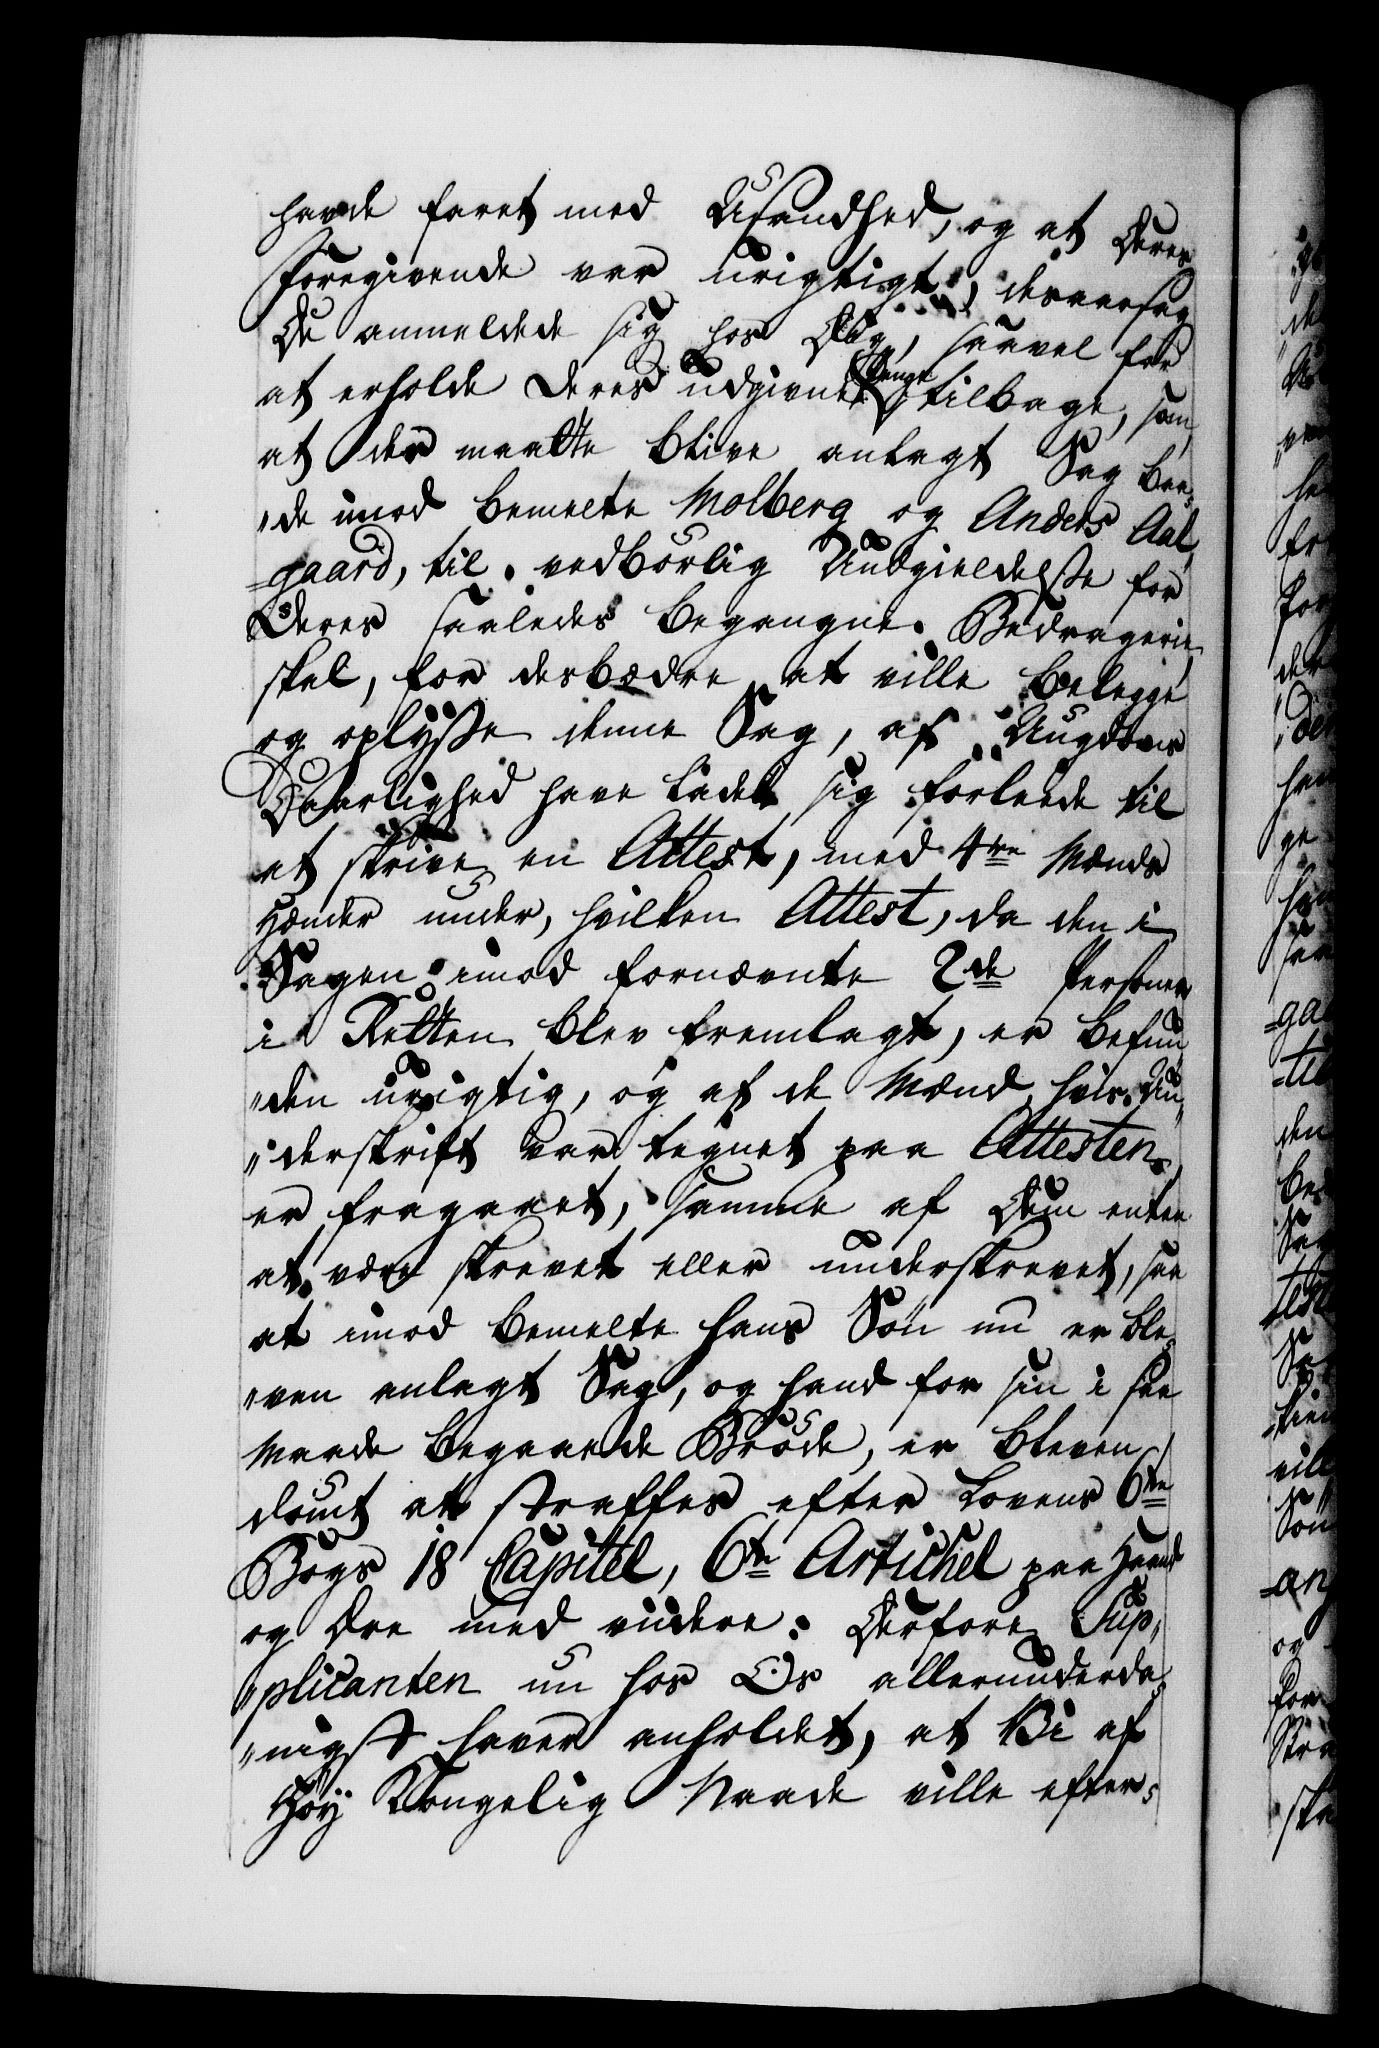 havde faret med Usandhed, og at Deres
Foregivende var urigtigt, desaarsag
De anmeldede sig hos Dig, saavel for
at erholde Deres udgivne Penge tilbage, som
at der maatte blive anlagt Sag baa-
"de imod bemelte Molberg og Anders Aal,
=gaard, til vedbørlig Undgieldelsse for
Deres saaledes begangne Bedragerie
skal, for desbædre at ville belegge
og oplysse denne Sag, af Ungdoms
Daarlighed have ladet sig forleede til
at skrive en Attest, med 4re Mænds
Hænder under, hvilken Attest, da den i
Sagen imod fornævnte 2de Personer
i Retten blev fremlagt, er befun,
"den urigtig, og af de Mænd, hvis Un,
"derskrift var tegnet paa Attesten,
er fragaaet, samme af Dem enten
at være skrevet eller underskrevet, saa
at imod bemelte hans Søn nu er ble,
"ven anlagt Sag, og hand for sin i saa
Maade begaaede Brøde, er bleven
dømt at straffes efter Lovens 6te
Bogs 18 Capitel, 6te Artichel paa Haand
og Ære med viidere: Derfore Sup,
"plicanten nu hos Os allerunderda,
"nigst haver anholdet, at Vi af
Høy Kongelig Naade ville efter,